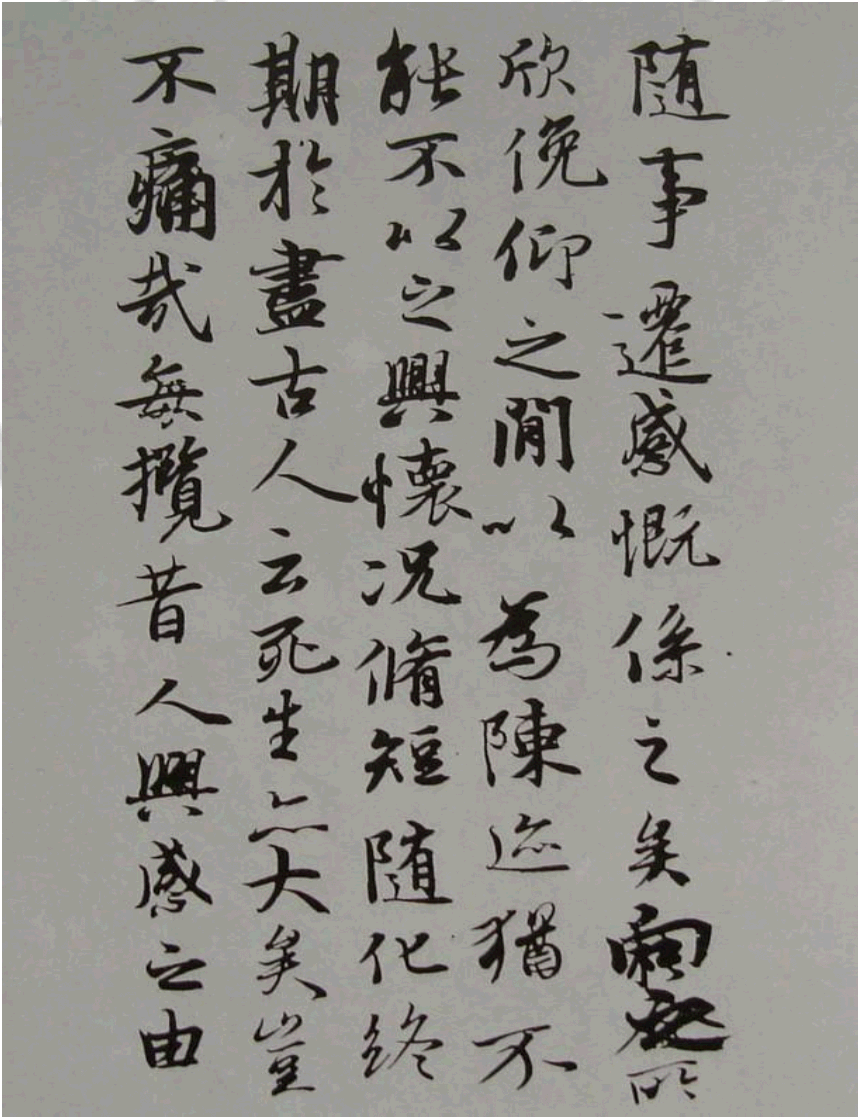 随事遷感慨係之矣向之所
欣俛仰之閒以為陳迹猶不
能不以之興懷况脩短随化終
期於盡古人云死生亦大矣豈
不痛哉每攬昔人興感之由